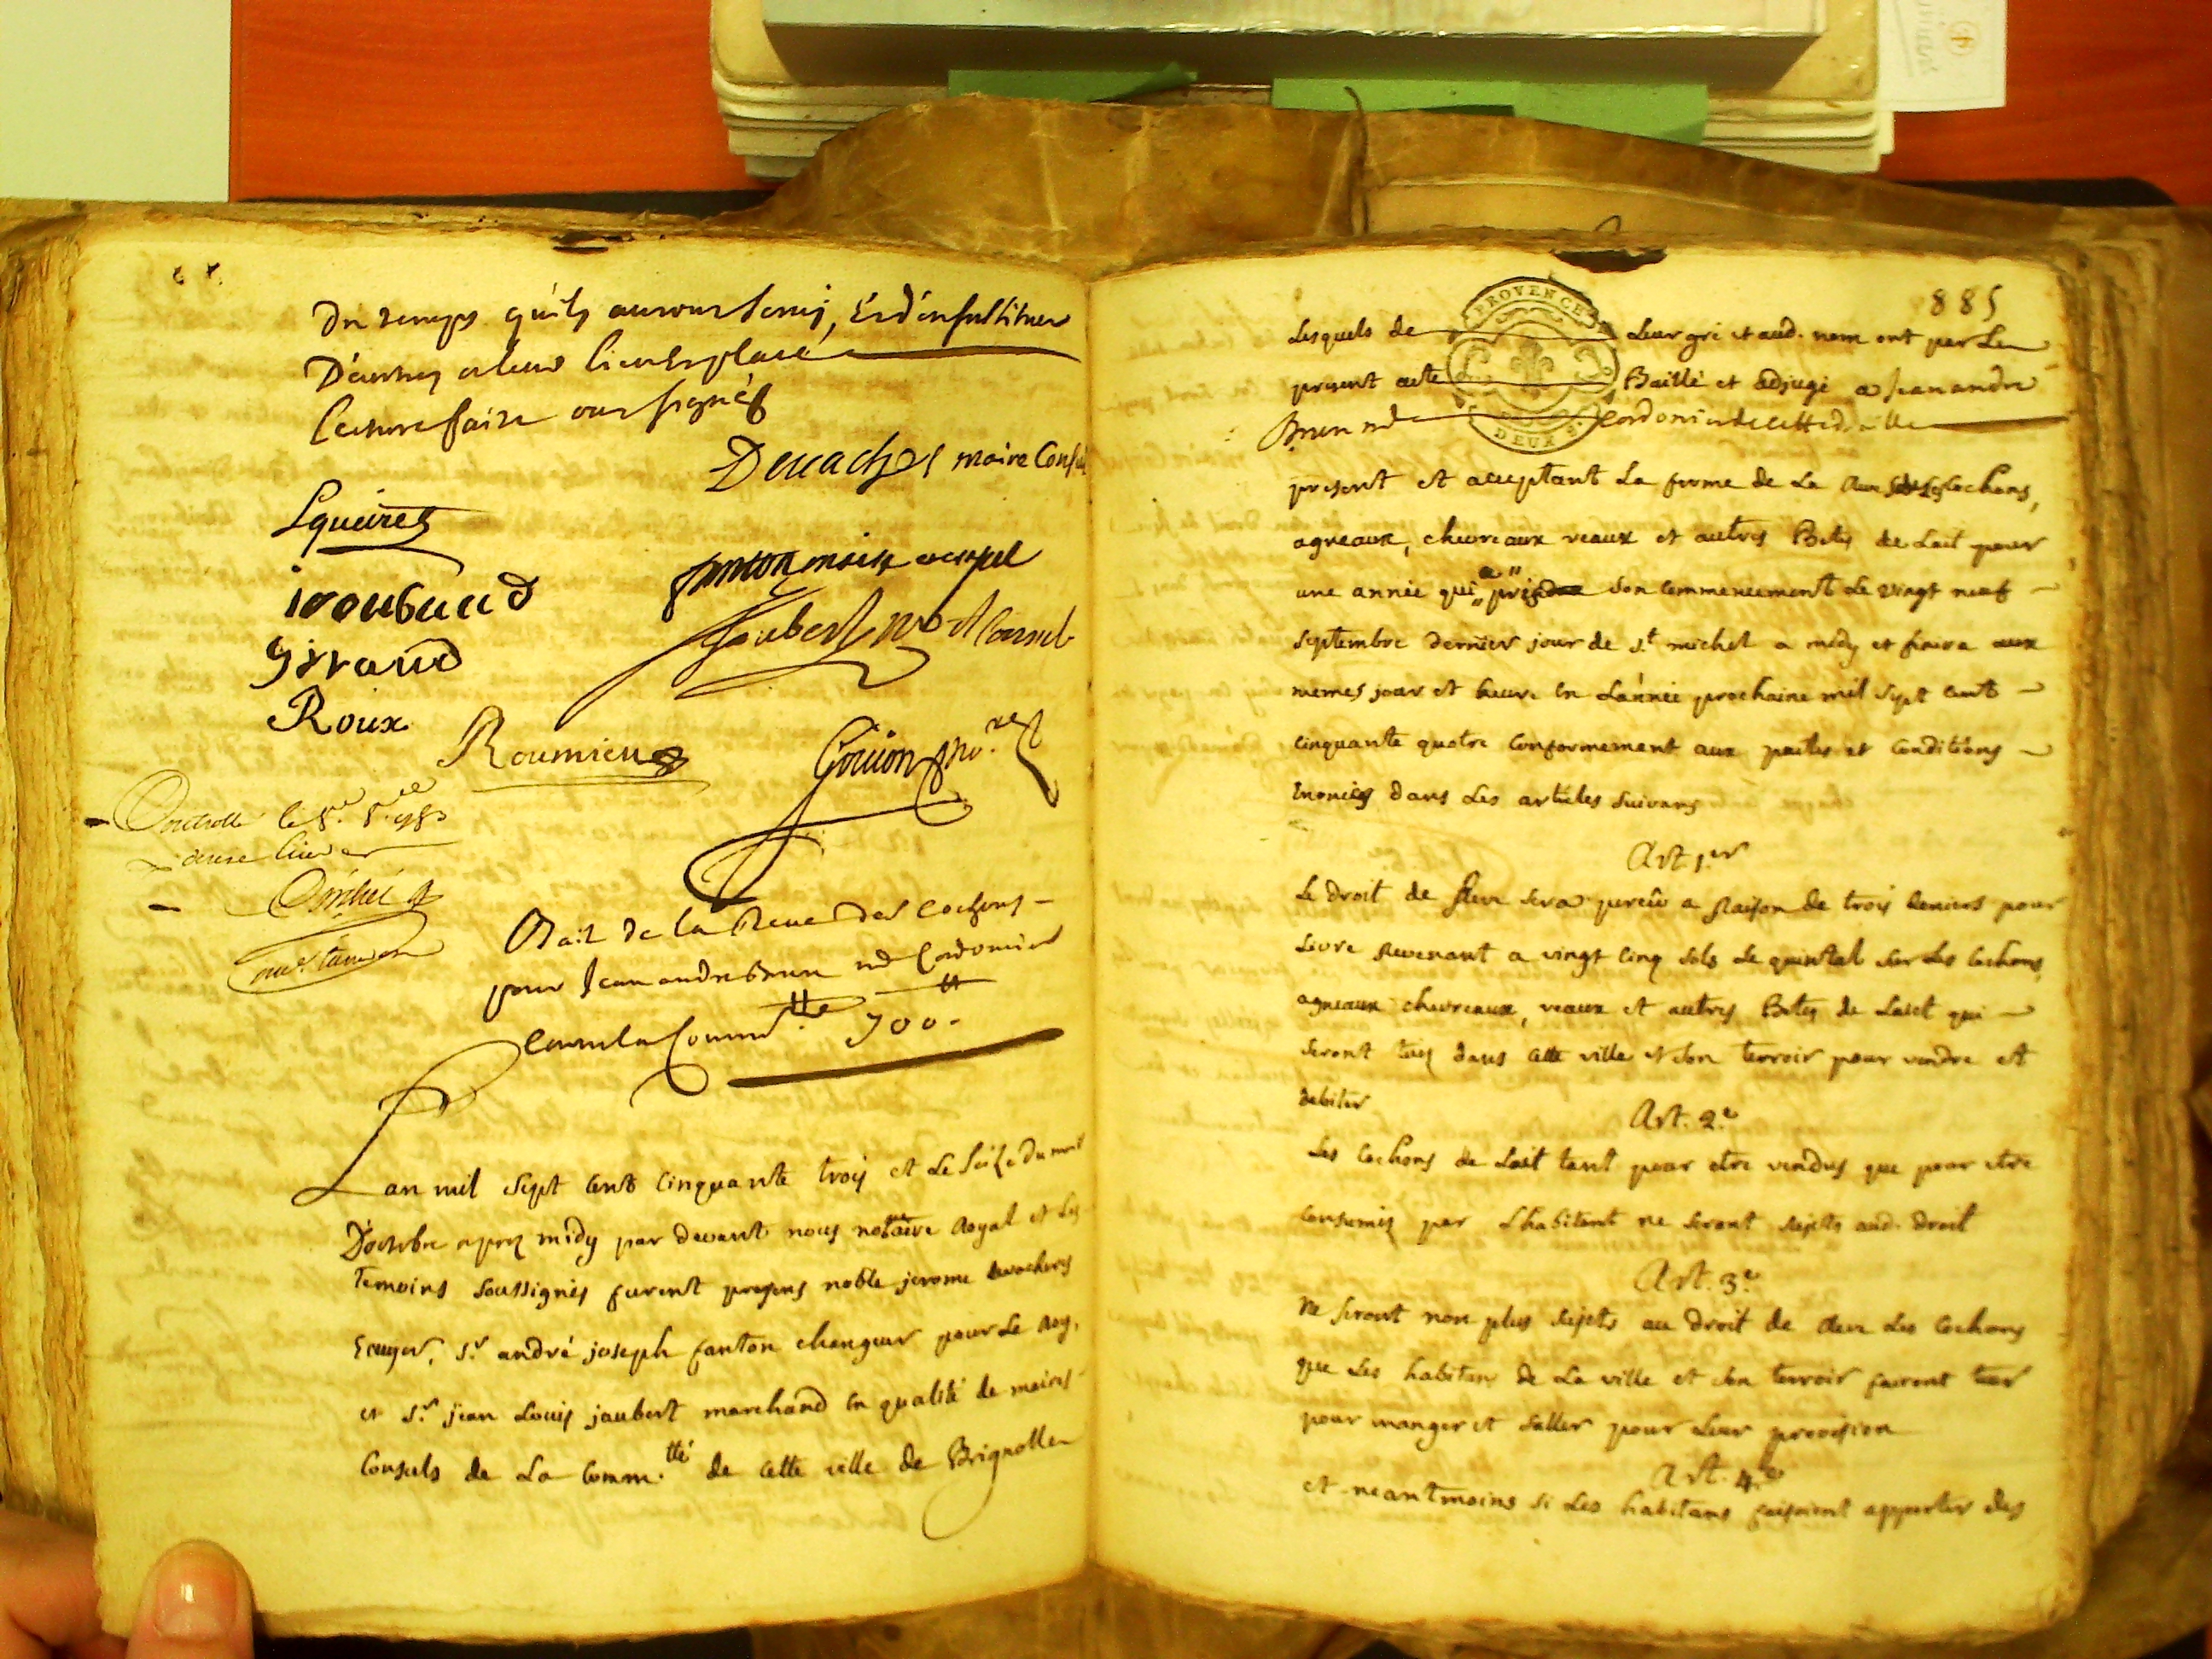 Du temps qu'ils auront servi, Et d'en substituer
D'autres a leur lieu et place
lecture faite ont signés
Devaches maire Consul
Squeires
fanton maire consul
iroubaud
Jaubert m.e et Consul
Giraud
Roux
Roumieu
Gouion no.re
Controllé le
douze livres
Bail de la Reve des cochons
pour Jean andre Brun md Cordonier
Contre la Comm.tté 700.
Lan mil sept cent cinquante trois et le seize du mois
D'octobre aprez midy par devant nous notaire Royal et les
temoins soussignés furent presens noble jerome devaches
Ecuyer, s.r andré joseph fanton changeur pour le Roy,
et s.r jean Louis jaubert marchand en qualité de maires
Consuls de la Comm.tté de cette ville de Brignolle
885
PROVENCE
DEUX S.
Lesquels de leur gré et aud. nom ont par le
present acte Baillé et adjugé a jean andre
Brun md Cordonier de cette d. ville
present et acceptant la ferme de la Reve des Cochons,
agneaux, chevreaux veaux et autres Betes de Lait pour
une année qui a pris son commencement le vingt neuf
septembre dernier jour de s.t michel a midy et finira aux
memes jour et heure en L'année prochaine mil sept cent
cinquante quatre conformement aux pactes et conditions
Enoncées dans les articles suivans
Art. 1.er
Le droit de Reve sera perçû a Raison de trois deniers pour
Livre Revenant a vingt cinq sols le quintal sur les Cochons,
agneaux chevreaux, veaux et autres Betes de Lait qui
seront tués dans cette ville et son terroir pour vendre et
debiter
Art. 2.e
Les Cochons de Lait tant pour etre vendus que pour etre
consumés par L'habitant ne seront sujets aud. droit
Art. 3.e
Ne seront non plus sujets au droit de Reve Les Cochons
que Les habitans de La ville et son terroir fairont tuer
pour manger et saller pour leur provision
Art. 4.e
et neantmoins si Les habitans faisoient apporter des